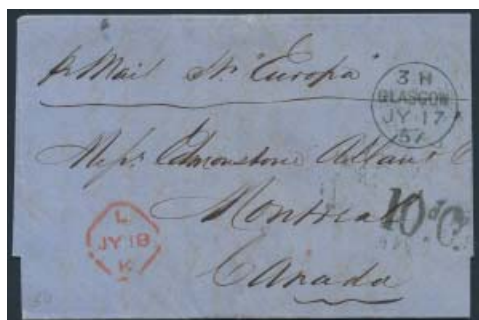 pr Mail Str "Europa"
3 H
GLASGOW
JY 17
57
Messrs Edmonstone Allan &
Montreal
10d Cy
L
JY 18
K
Canada